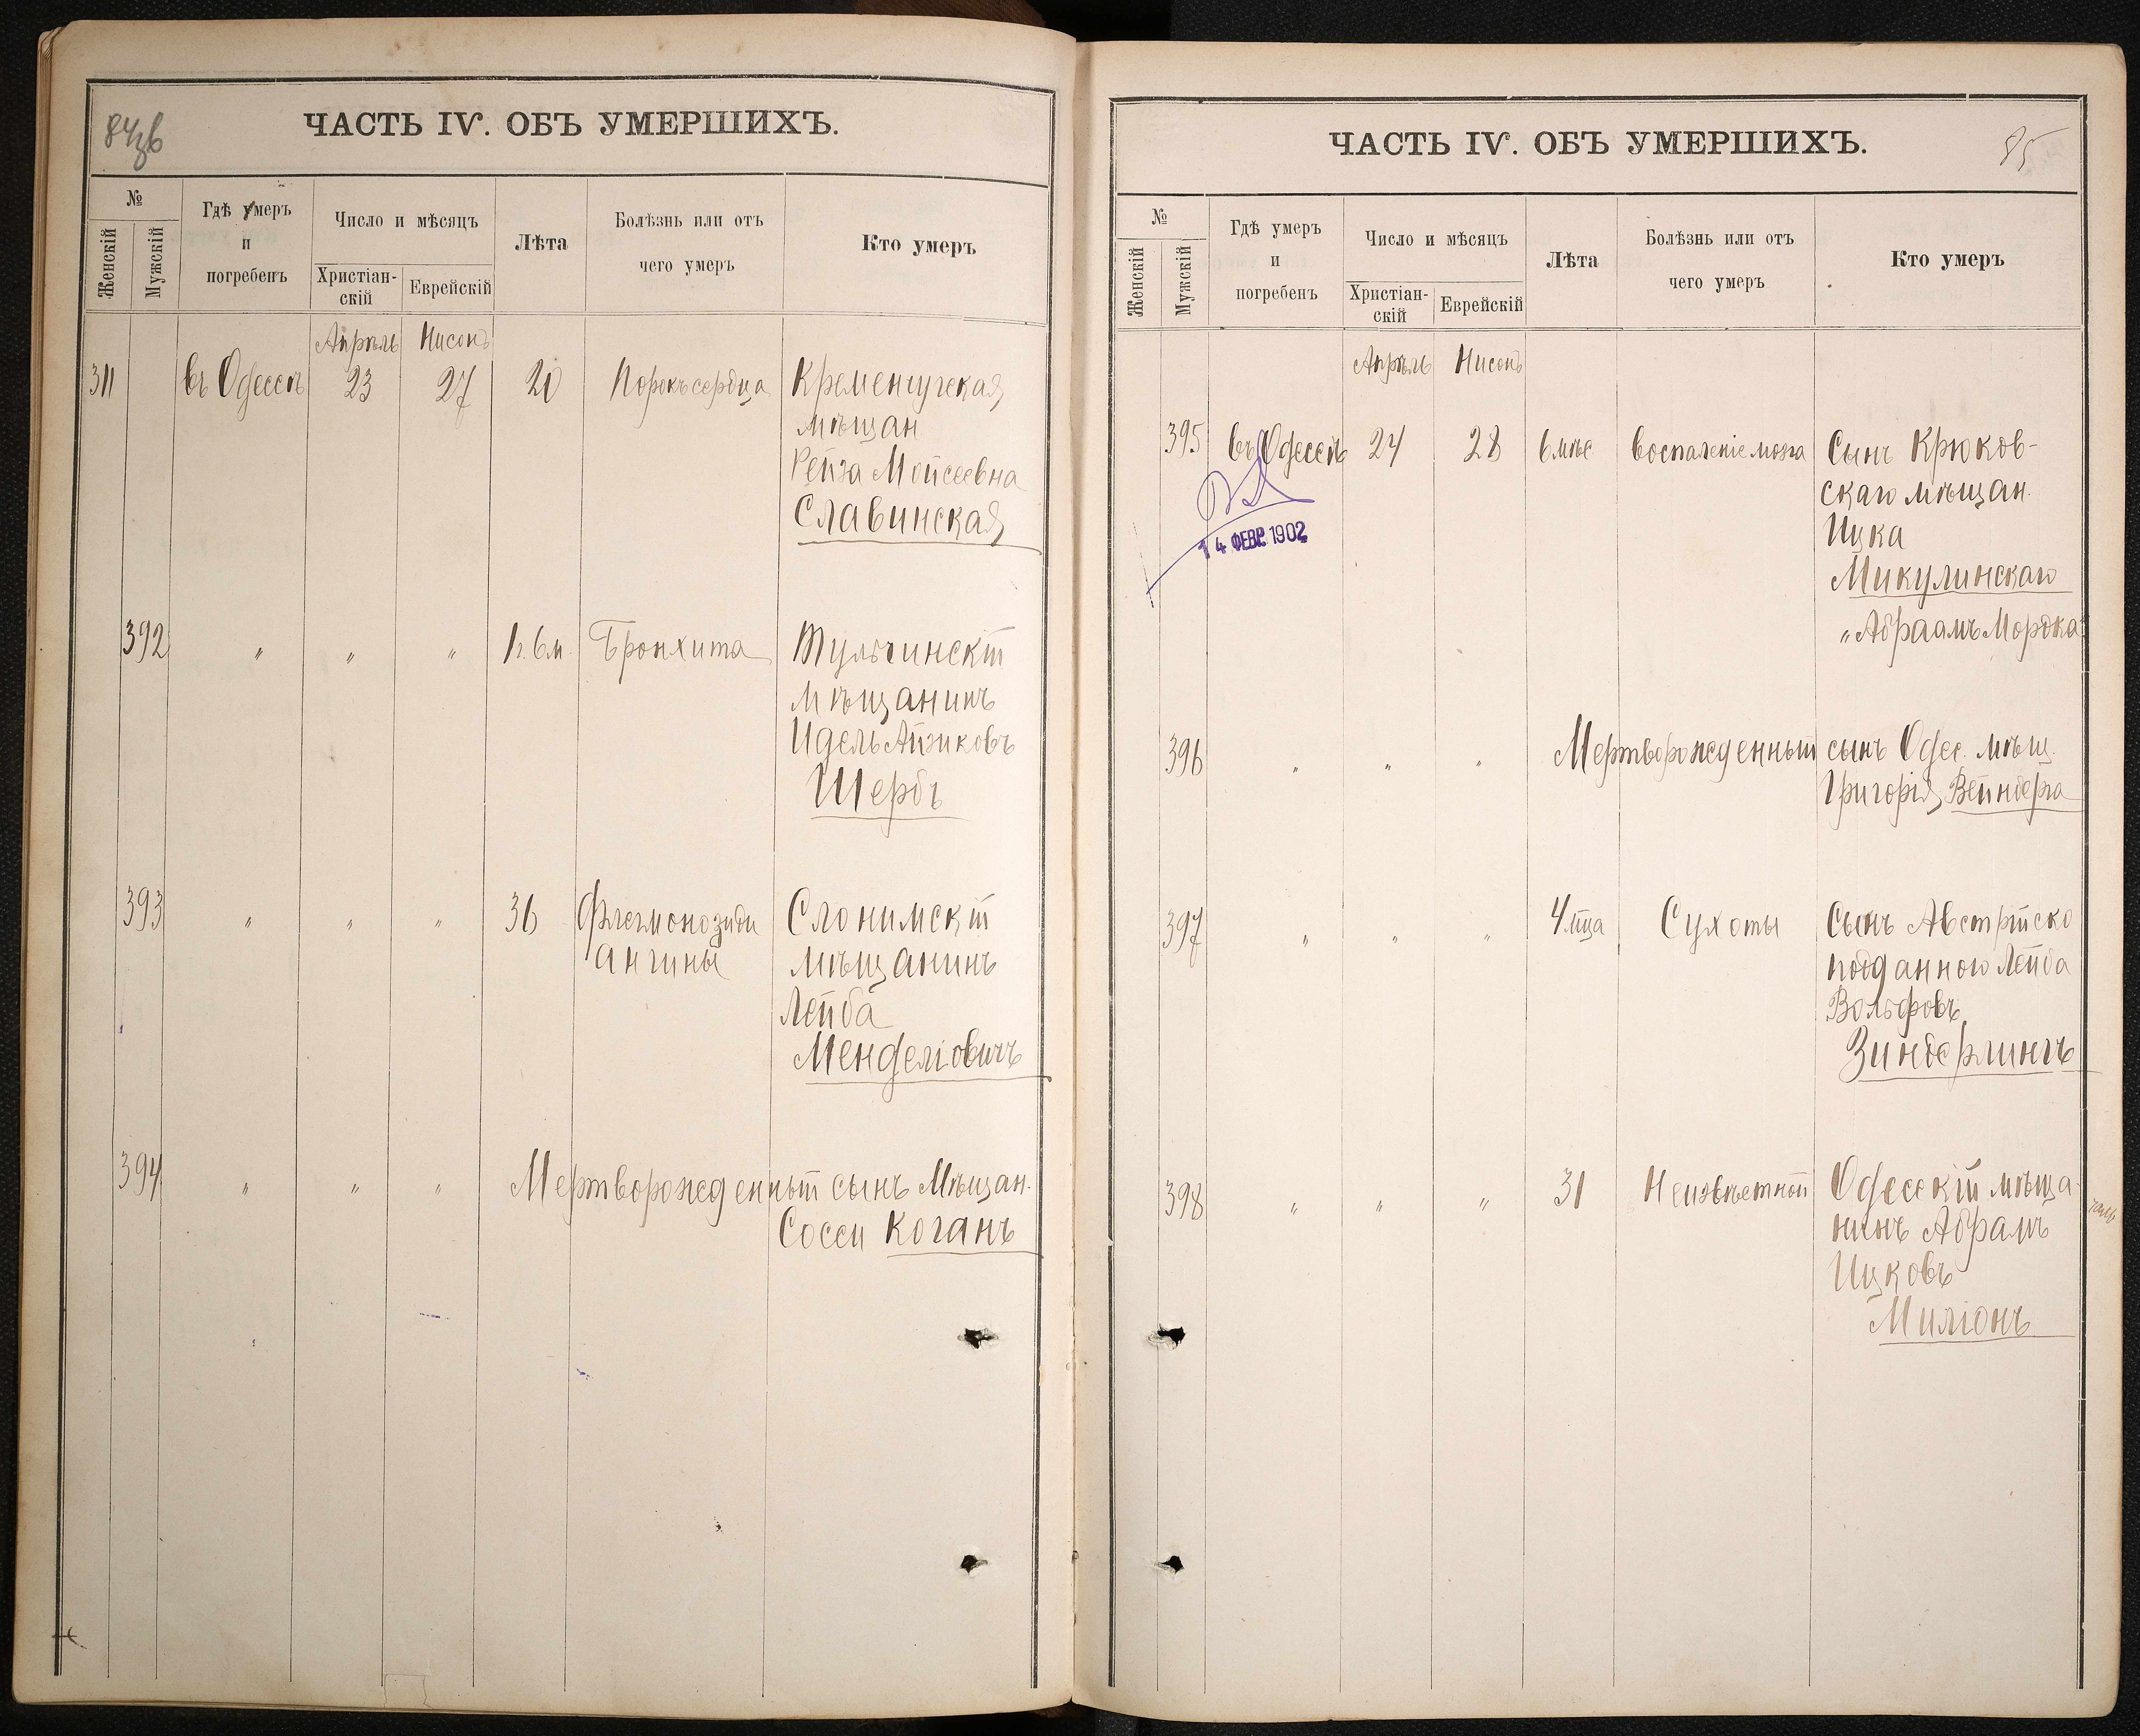 84зв
ЧАСТЬ IV. ОБЪ УМЕРШИХЪ.
№
Женскій
Мужскій
Гдѣ умеръ
и
погребенъ
Число и мѣсяцъ
Христіан-
скій
Еврейскій
Лѣта
Болѣзнь или отъ
чего умеръ
Кто умеръ
Апрѣль Нисонъ
311 въ Одессѣ 23 27 20 Порокъ сердца Кременчугская
мѣщан
Рейза Мойсеевна
Славинская
392 " " " 1г. 6м. Бронхита Тульчинскій
мѣщанинъ
Идель Айзиковъ
Щербъ
393 " " " 36 Флегмонозиди Слонимскій
ангины мѣщанинъ
Лейба
Менделіовичъ
394 " " " Мертворожденный сынъ Мѣщан.
Сосси Коганъ
ЧАСТЬ IV. ОБЪ УМЕРШИХЪ.
85
№
Женскій
Мужскій
Гдѣ умеръ
и
погребенъ
Число и мѣсяцъ
Христіан-
скій
Еврейскій
Лѣта
Болѣзнь или отъ
чего умеръ
Кто умеръ
Апрѣль Нисонъ
395 въ Одессѣ 24 28 6 мѣс воспаленіе мозга Сынъ Крюков-
скаго мѣщан.
Ицка
Микулинскаго
"Абраамъ Мордка"
14 ФЕВР. 1902
396 " " " Мертворожденный сынъ Одес. мѣщ.
Григорія Вейнберга
397 " " " 4 мца Сухоты Сынъ Австрійско
подданного Лейба
Вольфовъ
Зиндерлингъ
398 " " " 31 Неизвѣстной Одесскій мѣща-
нинъ Абрамъ
Ицковъ
Миліонъ